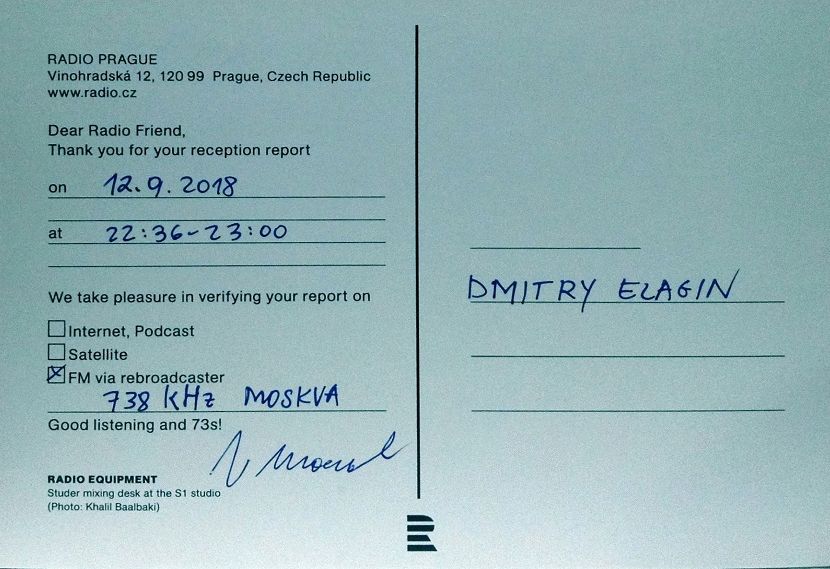 RADIO PRAGUE
Vinohradská 12, 120 99 Prague, Czech Republic
www.radio.cz
Dear Radio Friend,
Thank you for your reception report
on 12.9.2018
at 22:36-23:00
We take pleasure in verifying your report on
Internet, Podcast
Satellite
FM via rebroadcaster
738 kHz MOSKVA
Good listening and 73s!
RADIO EQUIPMENT
Studer mixing desk at the S1 studio
(Photo: Khalil Baalbaki)
DMITRY ELAGIN